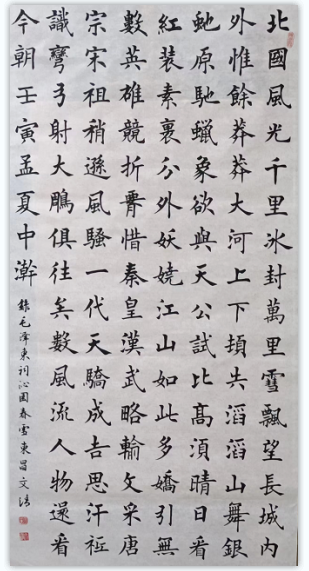 北國風光千里冰封萬里雪飄望長城內
外惟餘莽莽大河上下頓失滔滔山舞銀
虵原馳蠟象欲與天公試比高須晴日看
紅裝素裹分外妖嬈江山如此多嬌引無
數英雄競折惜秦皇漢武略輸文采唐
宗宋祖稍遜風騷一代天驕成吉思汗祗
識彎弓射大鵰俱往矣數風流人物還看
今朝壬寅孟夏中澣
錄毛澤東詞沁園春雪東昌文